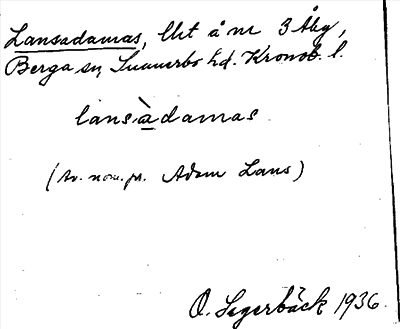 Lansadamas, lht å nr 3 Åby,
Berga sn, Sunnerbo hd. Kronob. l.
lansàdamas
(Av. nom. pr. Adam Lans)
O. Segerbäck 1936.